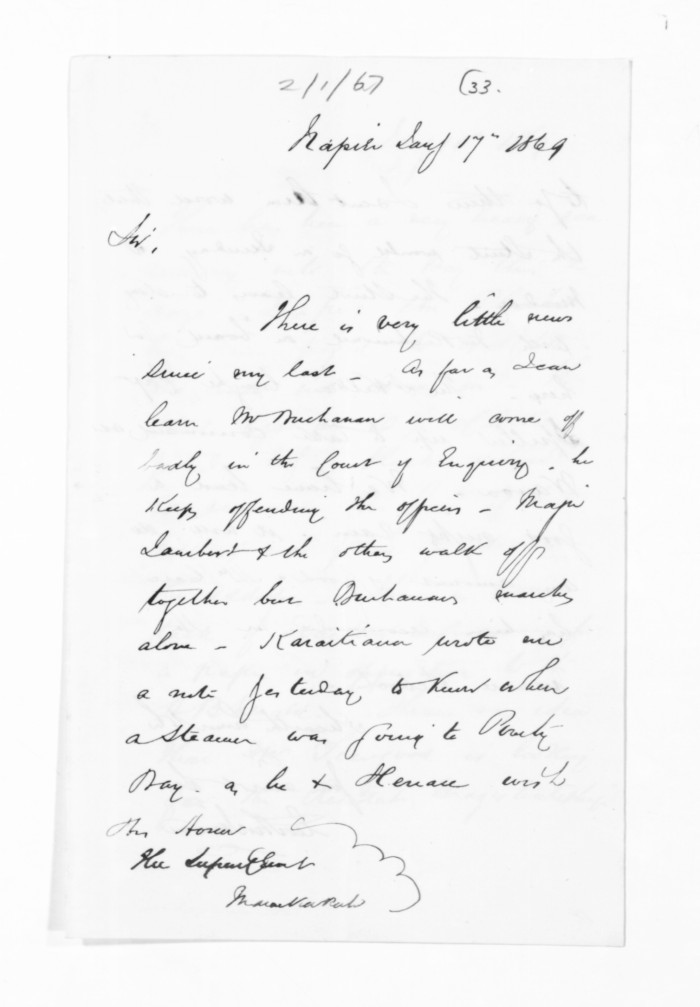 2/1/67 (33.
Napier Jany 17th 1869
Sir,
There is very little news
since my last - As far as I can
learn Mr Buchanan will come off
badly in the Court of Enquiry. he
keeps offending the officers - Major
Lambert & the others walk off
together but Buchanan marches
alone - Karaitiana wrote me
a note yesterday to know when
a steamer was going to Poverty
Bay. as he & Henare wish
His Honor
The Superintdent